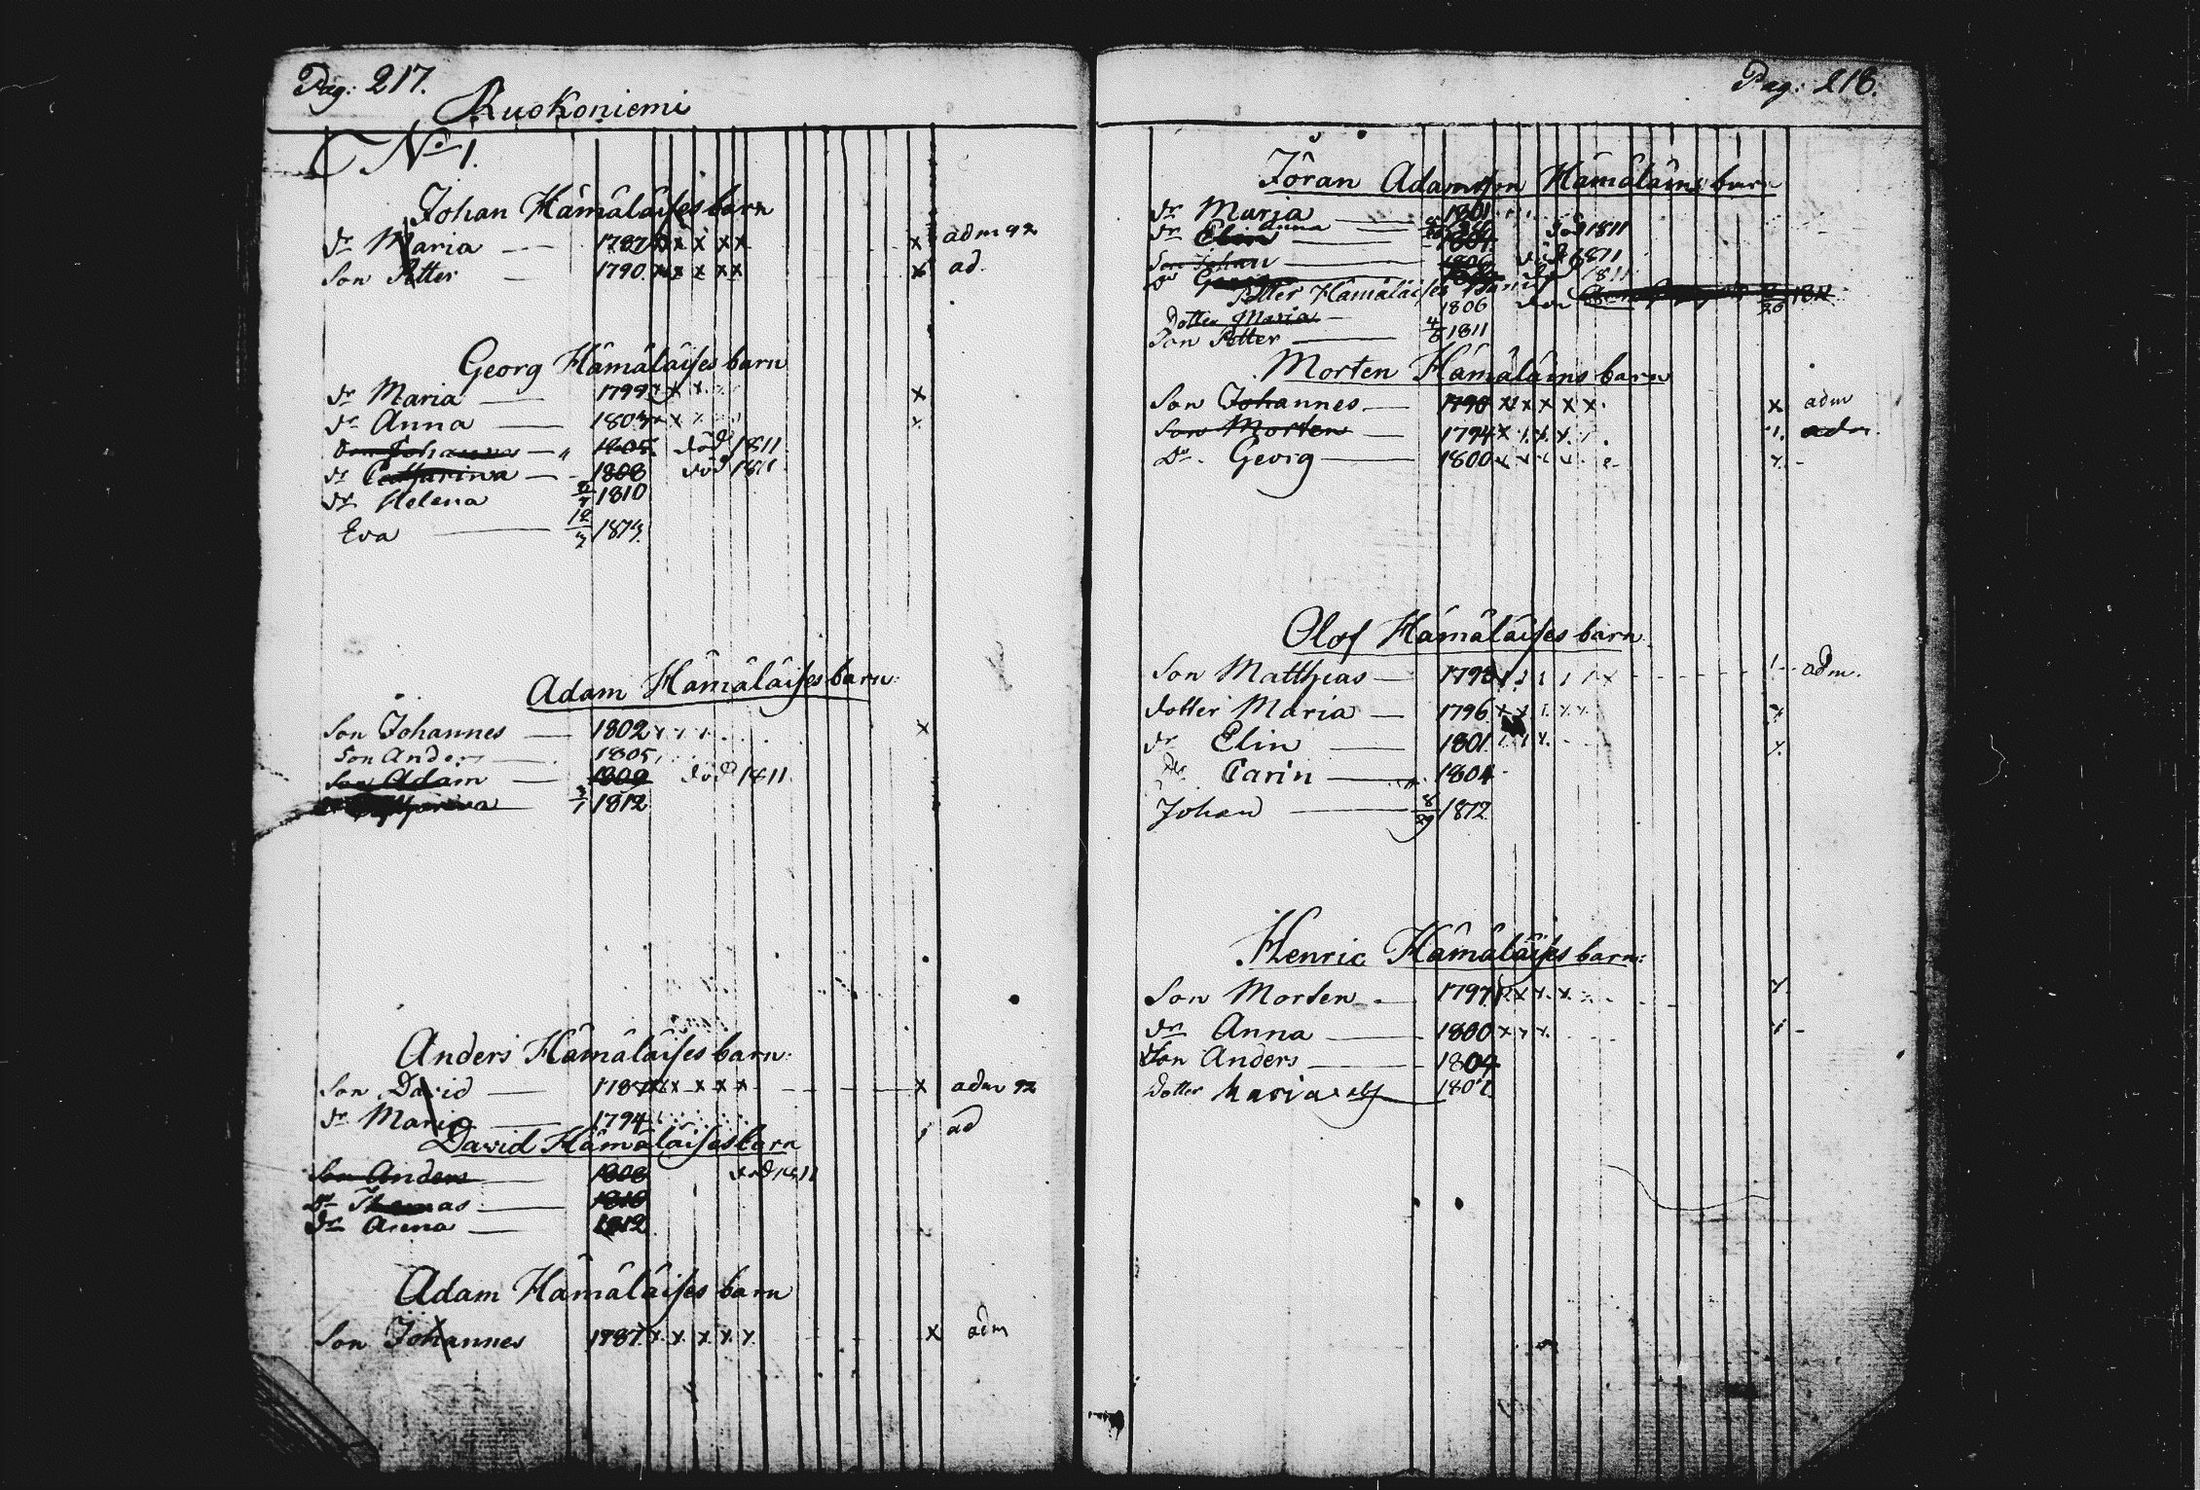 Pag: 217.
Ruokoniemi
No 1.
Johan Hämäläises barn
dr Maria 1787 x x x x x x adm 92
Son Petter 1790 x x x x x x ad.
Georg Hämäläises barn
dr Maria 1799 x x x x
dr Anna 1803 x x x
Son Johannes 1805 död 1811
dr Catharina 1808 död 1811
dr Helena 1810
Eva 12/7 1813
Adam Hämäläises barn
Son Johannes 1802 x
Son Anders 1805
Son Adam 1809 död 1811
3/1 1812
Anders Hämäläises barn
Son David 1787 x x x x x x adm 92
dr Maria 1794 ad
David Hämäläises barn
Son Anders 1808 död 1811
Dr Thomas 1810
dr Anna 1812
Adam Hämäläises barn
Son Johannes 1787 x x x x x x adm
Pag: 218.
Jöran Adamson Hämäläins barn
dr Maria 1801
dr Elin Anna 1804 död 1811
Son Johan 1806 död 1811
dr 1811
Petter Hämäläises barn
dotter Maria 1806
Son Petter 4/6 1811
Morten Hämäläins barn
Son Johannes 1790 x x x x x x adm
Son Morten 1794 x x x x adm
Dr. Georg 1800 x x x x
Olof Hämäläises barn
Son Matthias 1793 adm.
dotter Maria 1796 x x x x x
dr Elin 1801
dr Carin 1804
Johan 8/29 1812
Henric Hämäläises barn:
Son Morten 1797 x x x
dr Anna 1800 x x x
Son Anders 1804
dotter Maria 1807